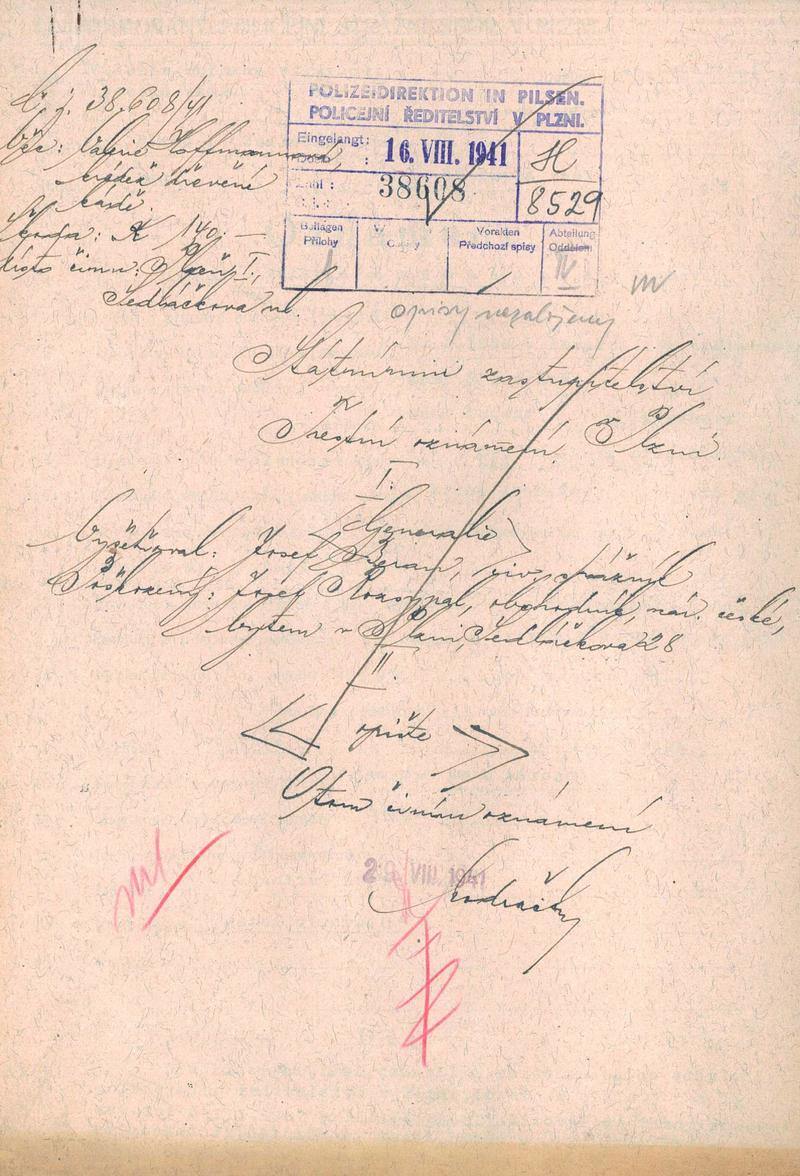 Č. j. 38.608/41
Věc: Valerie Hoffmannová,
krádež dřevěné
kádě.
Škoda: K 140.—
Místo činu: Plzeň I.,
Sedláčkova ul.
POLIZEIDIREKTION IN PILSEN.
POLICEJNÍ ŘEDITELSTVÍ V PLZNI.
Eingelangt:
16. VIII. 1941
H
38608
8529
Beilagen
Přílohy
Vorakten
Předchozí spisy
Abteilung
Oddělení
IV
opisy nezaloženy
Státnímu zastupitelství
v Plzni.
Trestní oznámení.
I.
Generalie
Vyšetřoval: Josef Beran, strážník
Poškozený: Josef Rozsypal, obchodník, nár. české,
bytem v Plzni, Sedláčkova 28
II.
opište
O tom činím oznámení
29. VIII. 1941